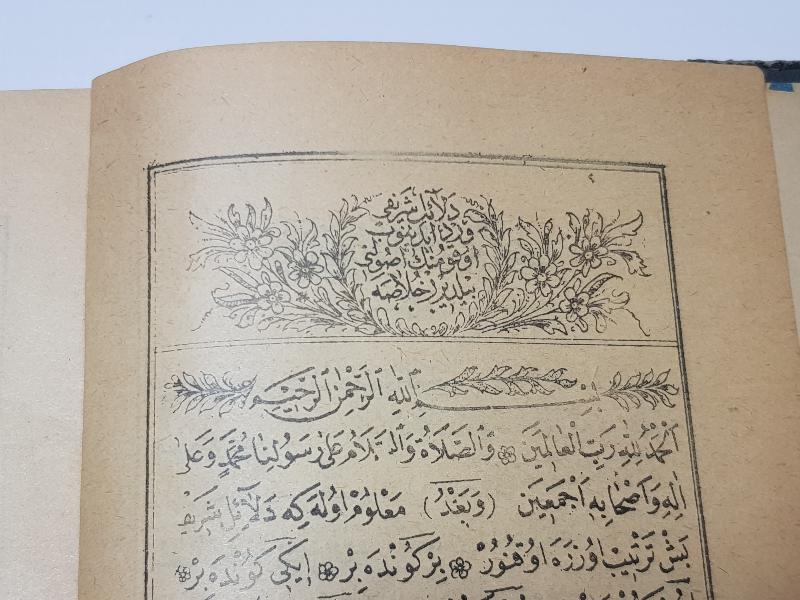 ٢
دلائل شريفى
ورد ايدينوب
اوقومنك اصولنى
بيلديرر خلاصه
بِسْمِ ٱللّٰهِ ٱلرَّحْمٰنِ ٱلرَّحِيمِ
اَلْحَمْدُ لِلّٰهِ رَبِّ الْعَالَمِينَ ❀ وَالصَّلَاةُ وَالسَّلَامُ عَلٰى رَسُولِنَا مُحَمَّدٍ وَعَلٰى
اٰلِهِ وَاَصْحَابِهِ اَجْمَعِينَ (وَبَعْدُ) مَعْلُومْ اُولَه كِه دَلَآئِلِ شَرِيفْ
بَشْ تَرْتِيبْ اُوزَرَه اُوقُنُورْ ❀ بِرْ كُونْدَه بِرْ ❀ اِيكِى كُونْدَه بِرْ ❀